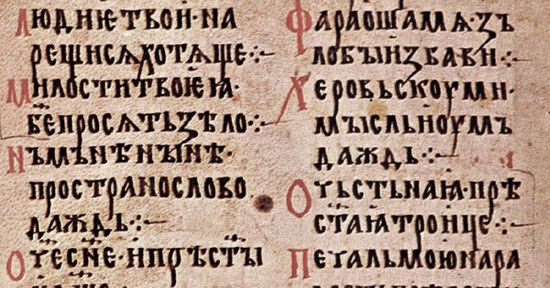 ЛЮДИѤ ТВОИ·НА
РЕЩИ СѦ ХОТѦЩЕ·:—
МИЛОСТИ ТВОѤꙖ·
Б҃Е ПРОСѦТЬ ЗѢЛО·:—
НЪ МЪНѢ НЫНѢ·
ПРОСТРАНО СЛОВО
ДАЖДЬ·:—
ОЧ҃Е СН҃Е·И ПРѢСТ҃Ы
ФАРАОША МѦ·ЗЪ
ЛОБЫ ИЗБАВИ·:—
ХЕРОВЬСКОУ МИ·
МЫСЛЬ И ОУМЪ
ДАЖДЬ·:—
О ЧЬСТЬНАꙖ·ПРѢ
СТ҃АꙖ ТРОИЦЕ·:—
ПЕЧАЛЬ МОЮ НА РА